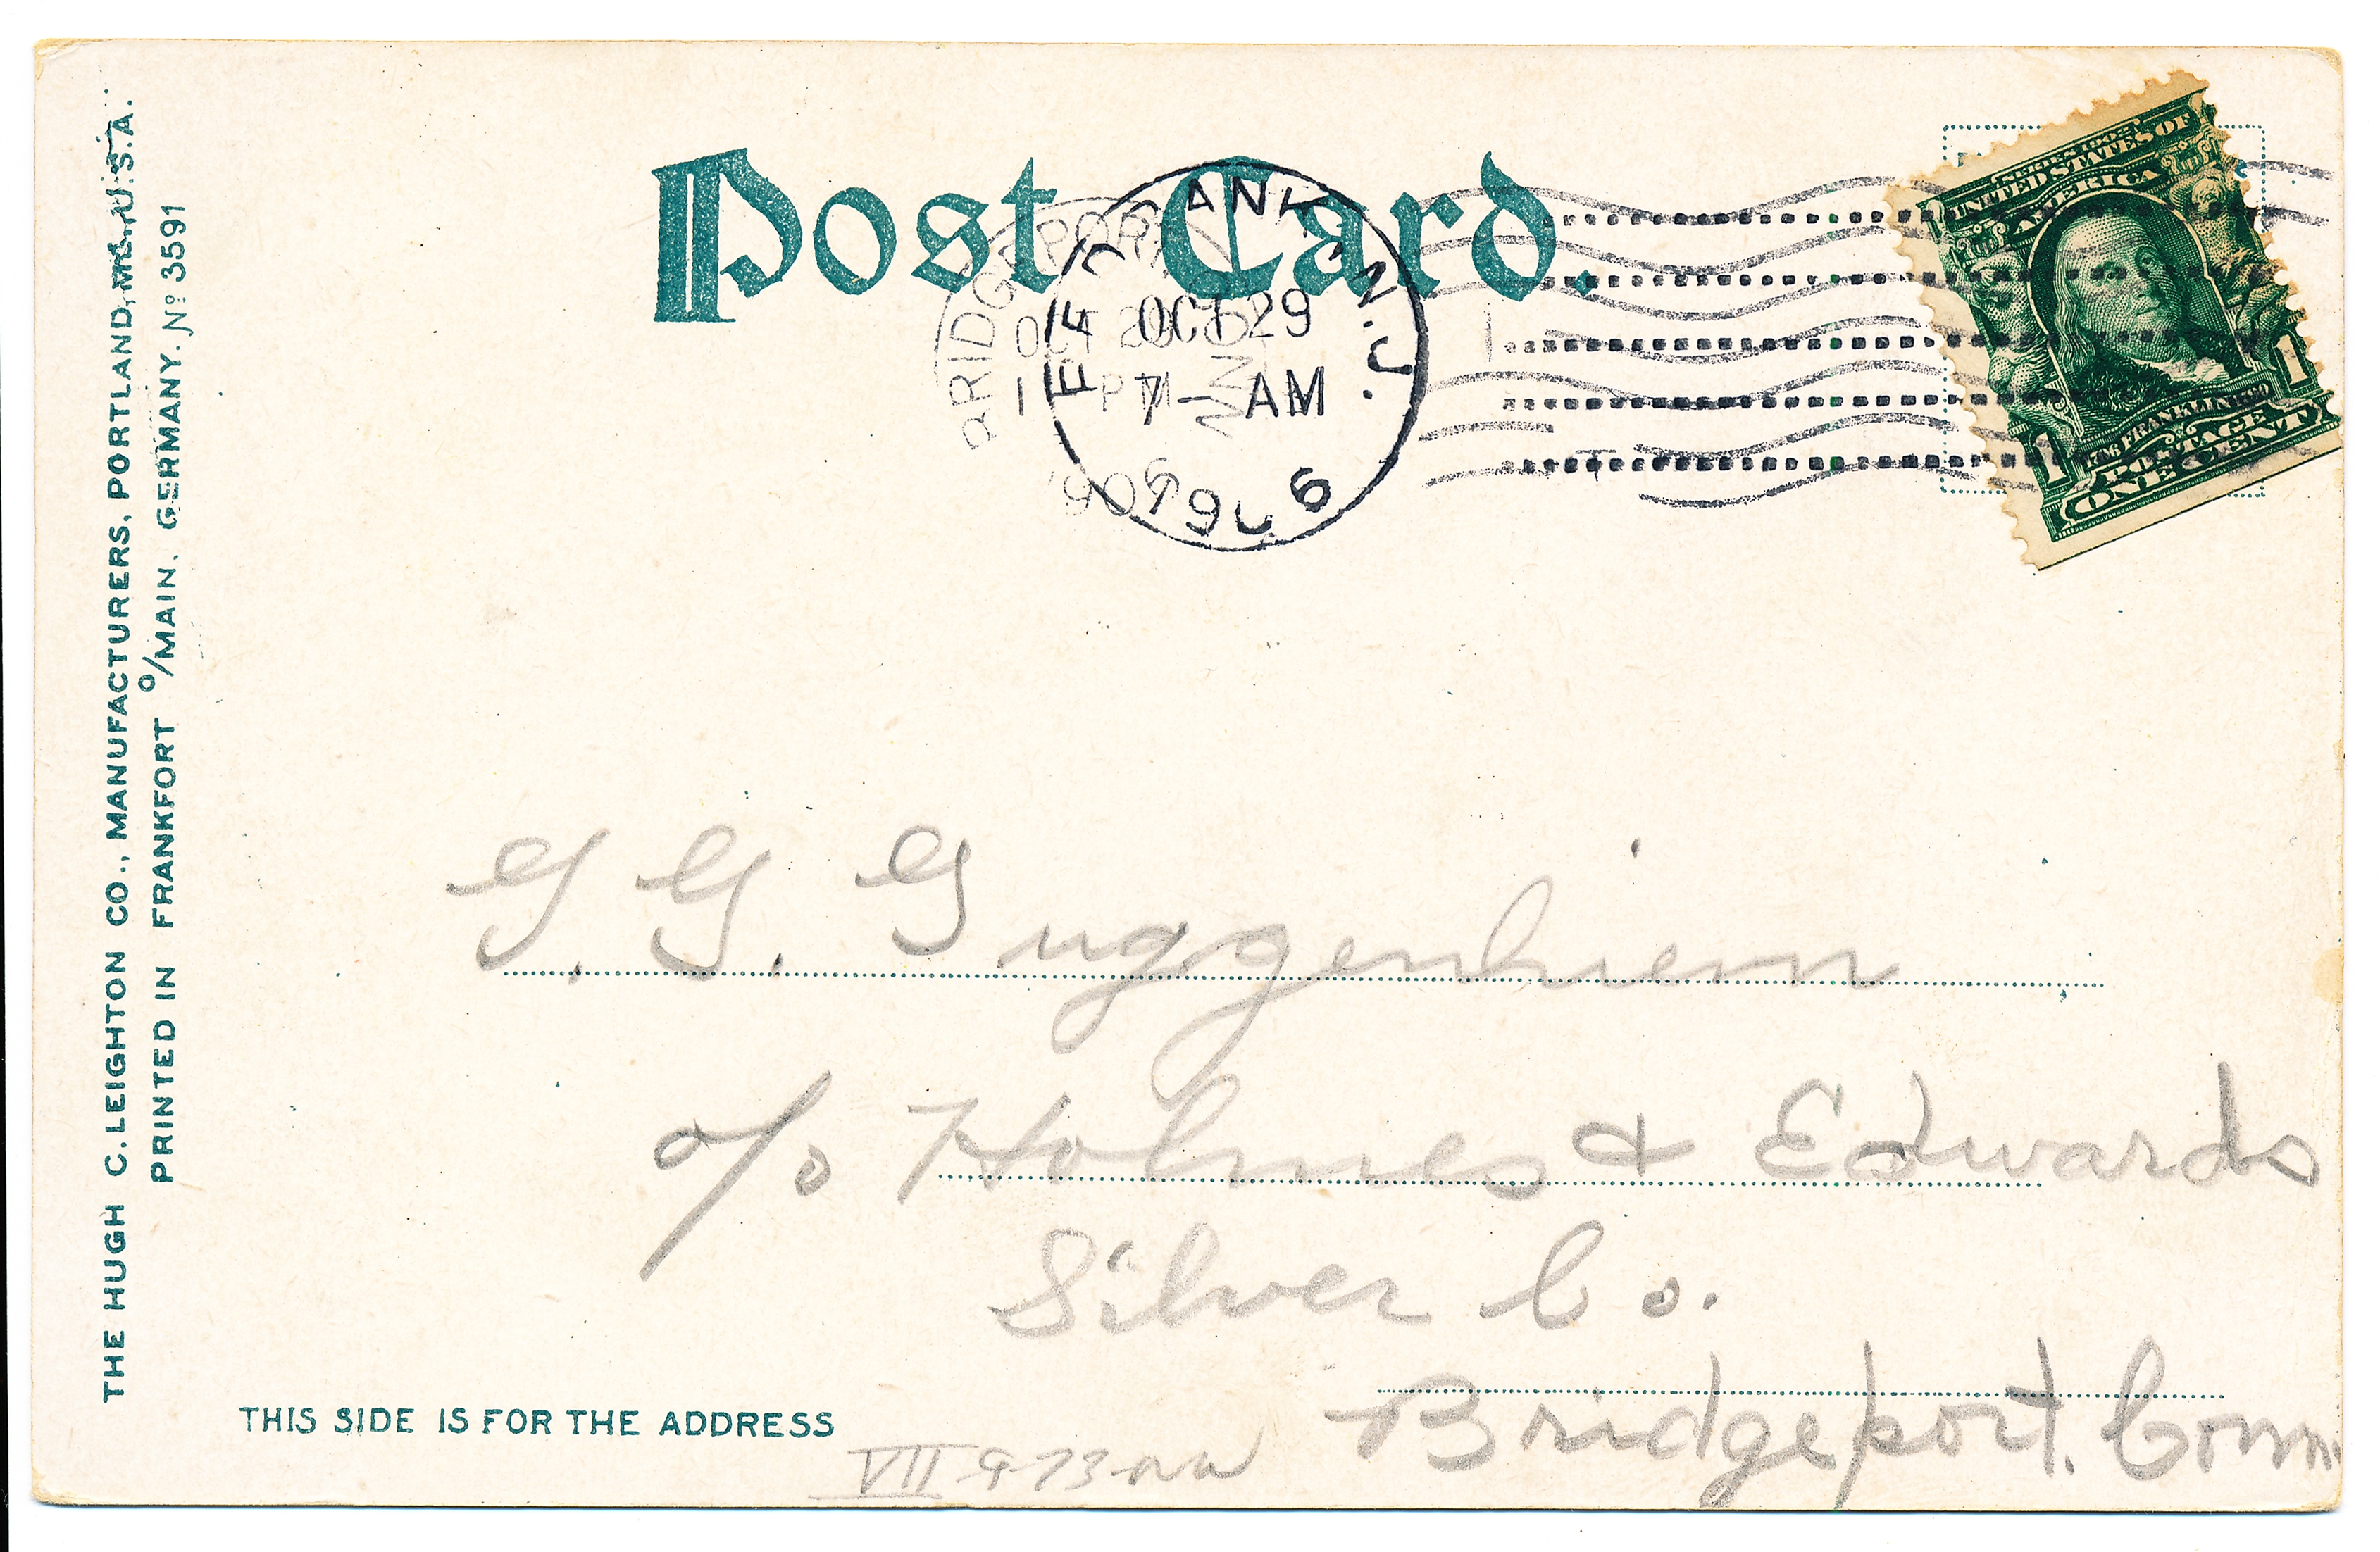 THE HUGH C. LEIGHTON CO., MANUFACTURERS, PORTLAND, ME., U.S.A.
PRINTED IN FRANKFORT o/MAIN. GERMANY. No 3591
Post Card.
BRIDGEPORT CONN
OCT 29
PM
ANK N.J.
OCT 29
7- AM
1906
SERIES 1902
UNITED STATES OF
AMERICA
1706 FRANKLIN 1790
1 POSTAGE 1
ONE CENT
G. G. Guggenhiem
c/o Holmes & Edwards
Silver Co.
Bridgeport. Conn.
THIS SIDE IS FOR THE ADDRESS
VII-9-73